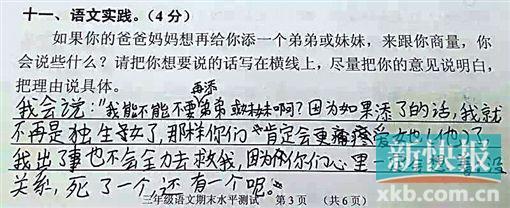 十一、语文实践。(4分)
如果你的爸爸妈妈想再给你添一个弟弟或妹妹，来跟你商量，你
会说些什么？请把你想要说的话写在横线上，尽量把你的意见说明白，
把理由说具体。
再添
我会说："我能不能不要弟弟或妹妹啊？因为如果添了的话，我就
不再是独生女了，那样你们肯定会更痛疼爱她(他)了，
我出了事也不会全力去救我，因为你们心里一
关系，死了一个，还有一个呢。"
三年级语文期末水平测试 第3页 (共6页)
新快报
xkb.com.cn